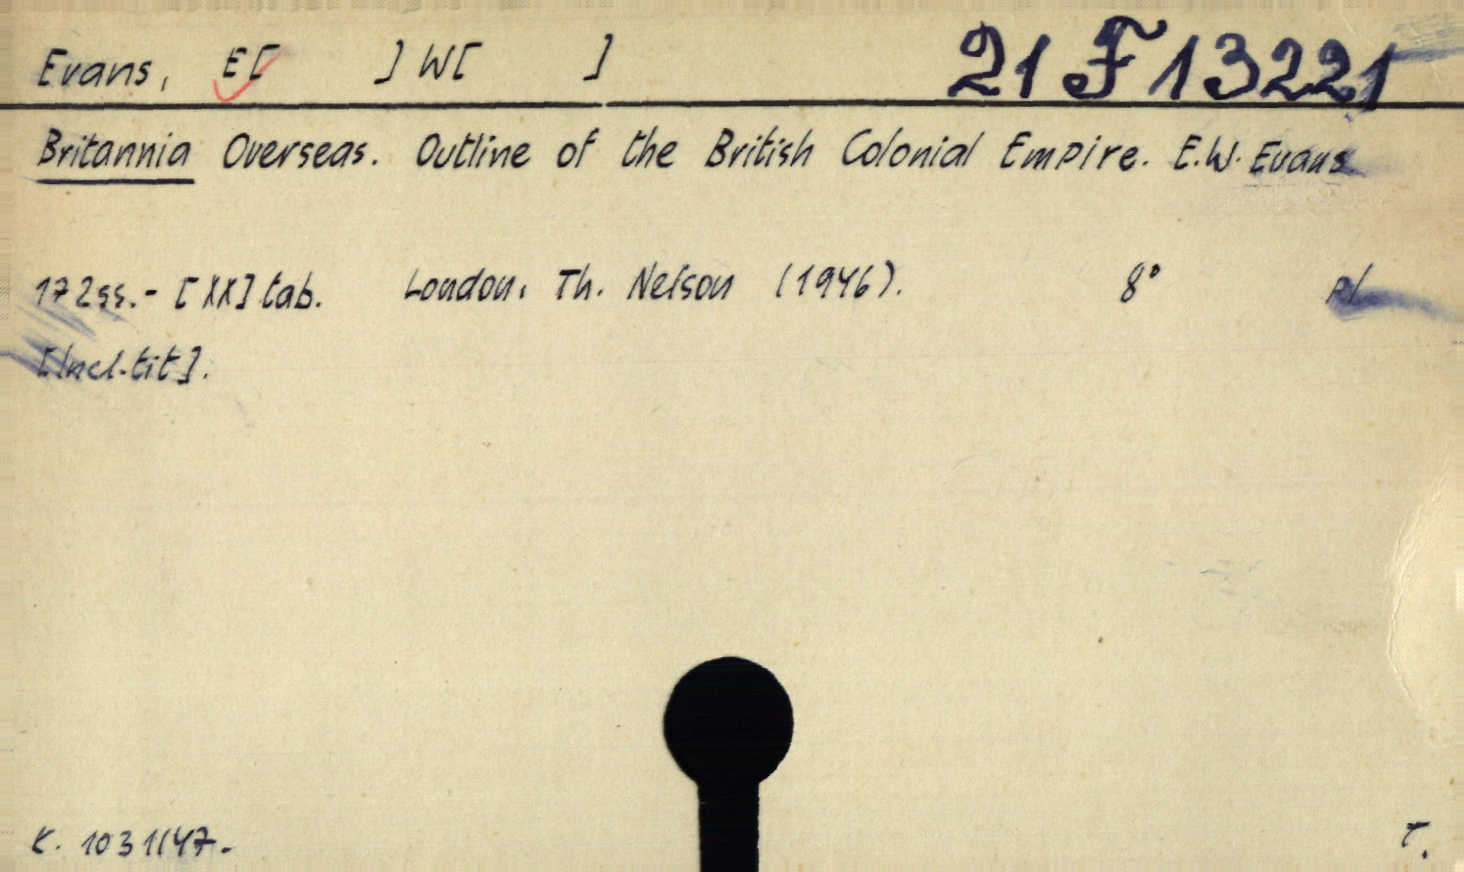 Evans, E[ ] W[ ] 21 F 13221
Britannia Overseas. Outline of the British Colonial Empire. E.W. Evans
172ss.- [XX] tab. London, Th. Nelson (1946). 8° pl
[Incl.tit].
K. 1031/47.- T.